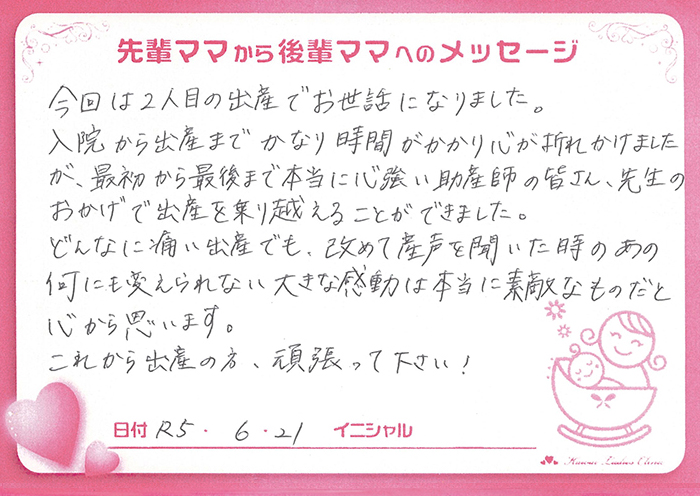 先輩ママから後輩ママへのメッセージ
今回は2人目の出産でお世話になりました。
入院から出産までかなり時間がかかり心が折れかけました
が、最初から最後まで本当に心強い助産師の皆さん、先生の
おかげで出産を乗り越えることができました。
どんなに痛い出産でも、改めて産声を聞いた時のあの
何にも変えられない大きな感動は本当に素敵なものだと
心から思います。
これから出産の方、頑張って下さい！
日付 R5・6・21 イニシャル
Ladies Clinic